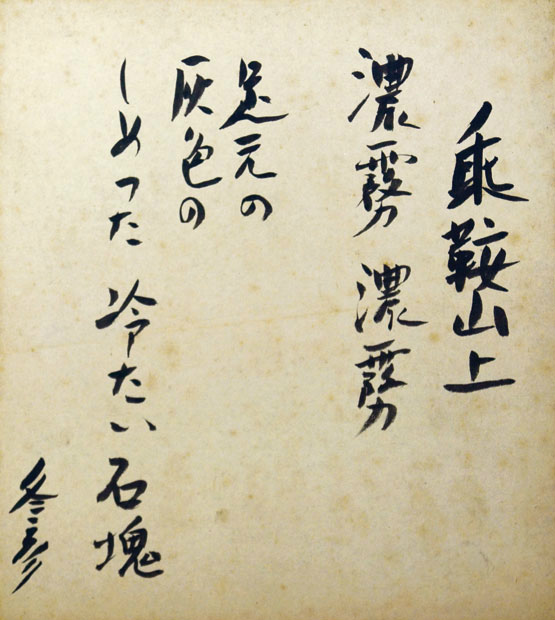 乗鞍山上
濃霧 濃霧
足元の
灰色の
しめった 冷たい 石塊
冬彦